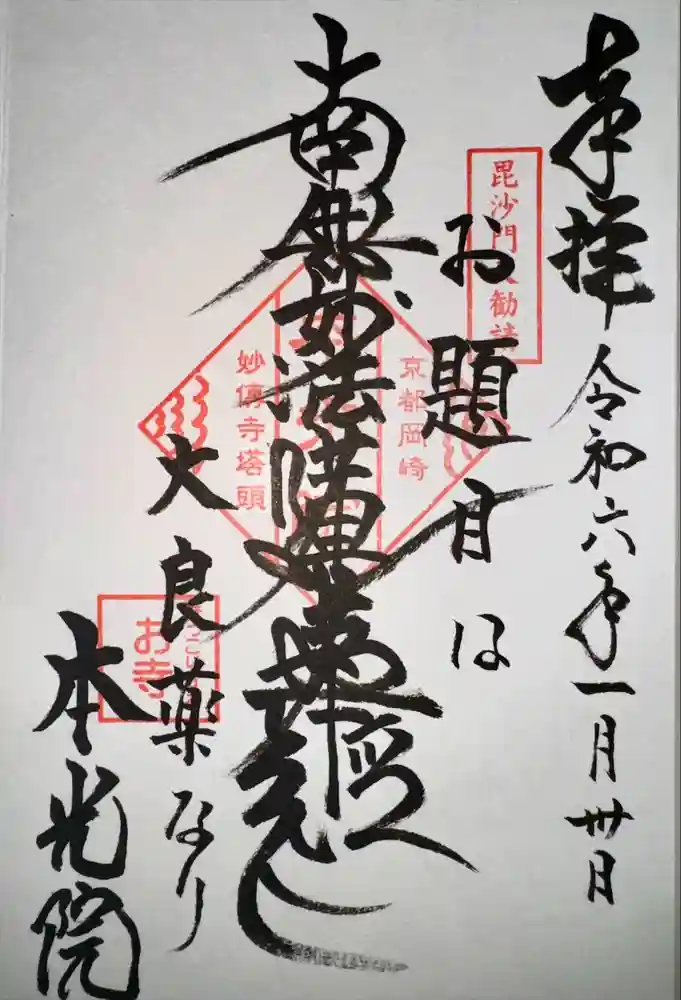 奉拝
令和六年一月卅日
毘沙門
勧請
お題目は
京都岡崎
南無妙法蓮華経
妙傳寺塔頭
大良薬なり
お寺
本光院